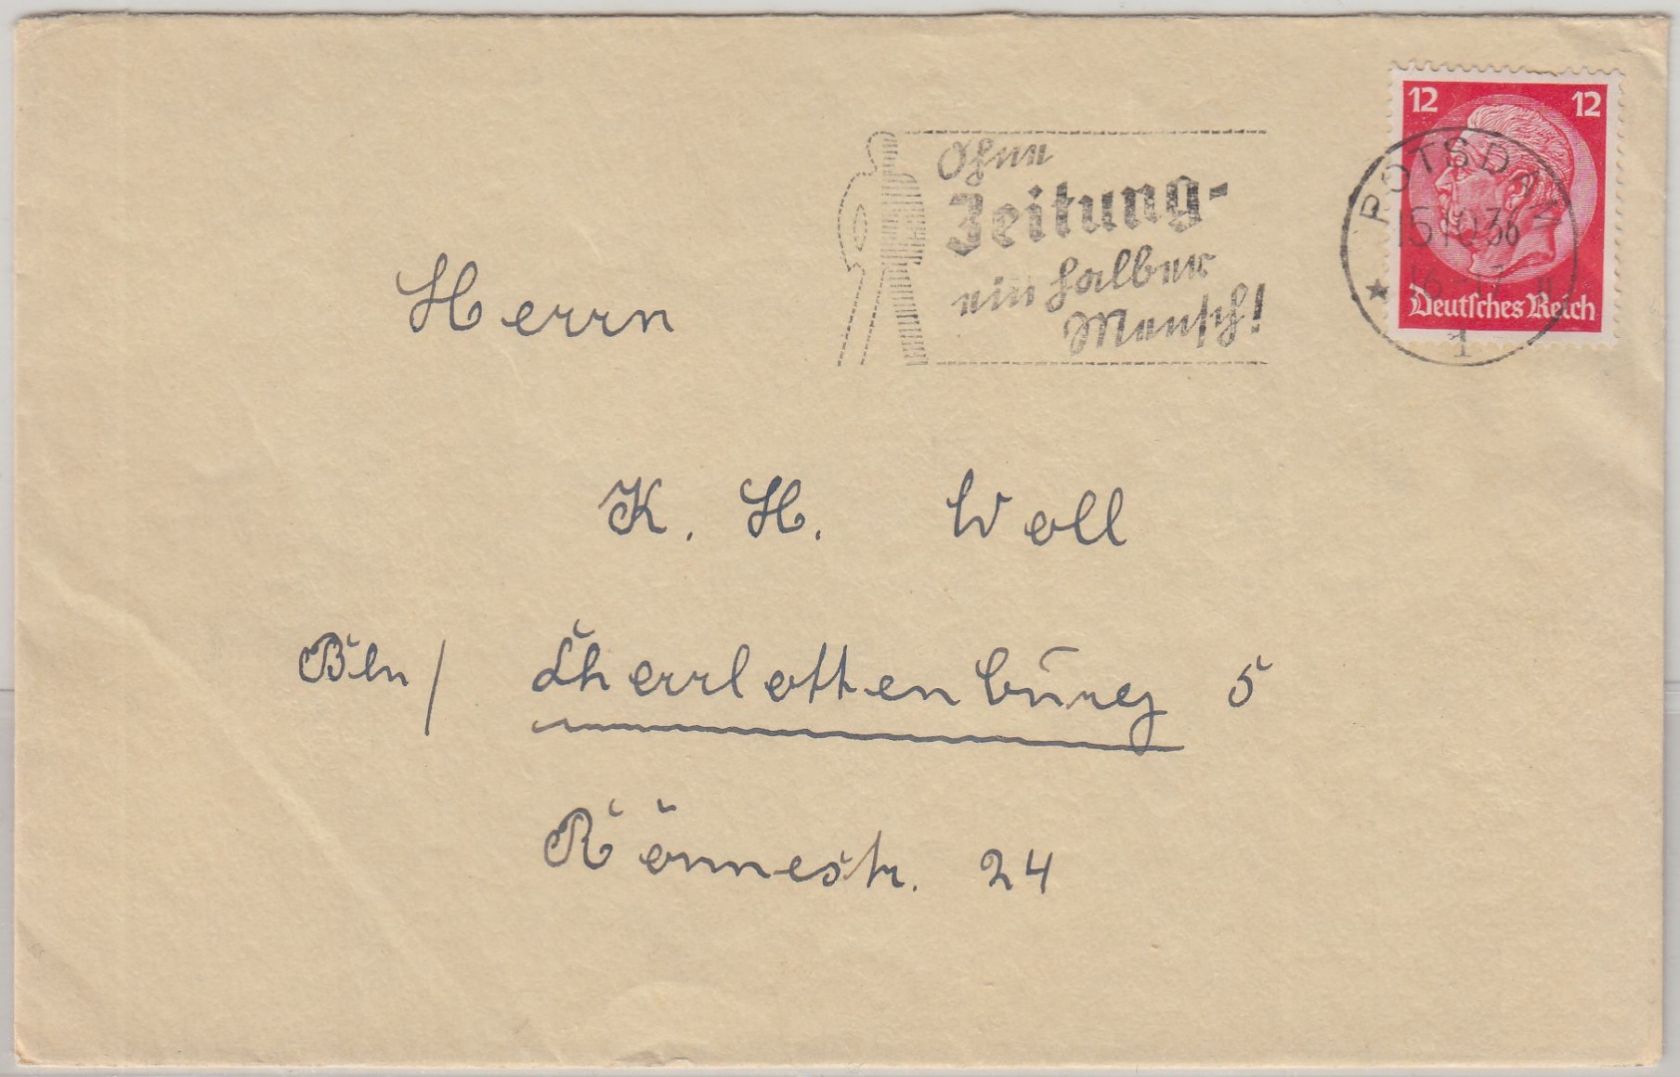 12 12
Deutsches Reich
POTSDAM
15.10.36
1
Ohne
Zeitung-
ein halber
Mensch!
Herrn
K. H. Woll
Bln / Charlottenburg 5
Rönnestr. 24